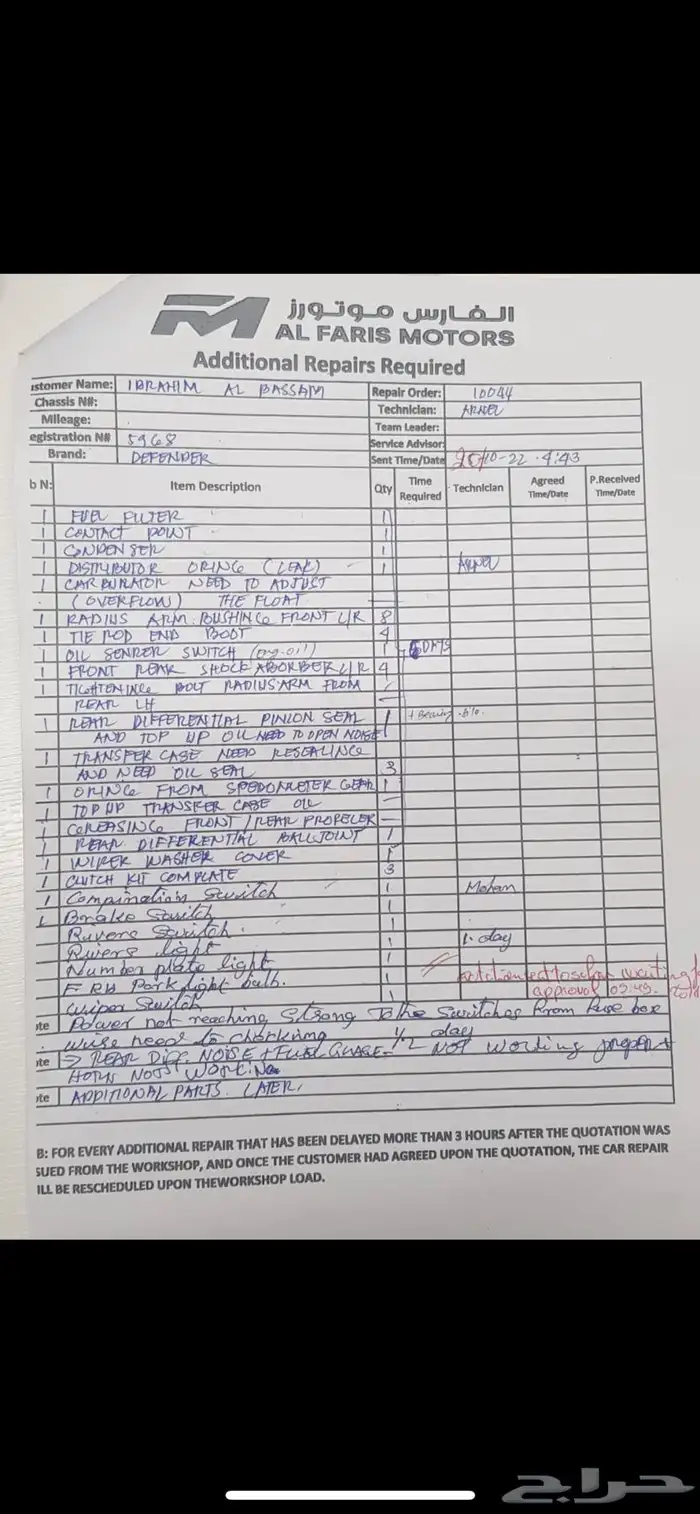 الفارس موتورز
AL FARIS MOTORS
Additional Repairs Required
ustomer Name: IBRAHIM AL BASSAM Repair Order: 10044
Chassis N#: Technician: ARNEL
Mileage: Team Leader:
egistration N# 5968 Service Advisor:
Brand: DEFENDER Sent Time/Date 20/10-22 - 4:43
b N: Item Description Qty Time Required Technician Agreed Time/Date P.Received Time/Date
1 FUEL FILTER 1
1 CONTACT POINT 1
1 CONDENSER 1
1 DISTRIBUTOR ORING (LEAK) 1 ARNEL
1 CARBURATOR NEED TO ADJUST
(OVERFLOW) THE FLOAT —
1 RADIUS ARM BUSHING FRONT L/R 8
1 TIE ROD END BOOT 4
1 OIL SENROR SWITCH (eng-oil) 1
1 FRONT REAR SHOCK ABORBER L/R 4
1 TIGHTENING BOLT RADIUS ARM FROM
REAR LH —
1 REAR DIFFERENTIAL PINION SEAL 1 + Bearing
AND TOP UP OIL NEED TO OPEN NOISE
1 TRANSFER CASE NEED RESEALING
AND NEED OIL SEAL 3
1 ORING FROM SPEDOMETER GEAR 1
1 TOP UP TRANSFER CASE OIL —
1 GREASING FRONT/REAR PROPELER —
1 REAR DIFFERENTIAL BALLJOINT 1
1 WIRER WASHER COVER
1 CLUTCH KIT COMPLATE 3
1 Compination Switch 1 Mohan
1 Brake Switch 1
Rivers Switch. 1
Rivers light 1 1. day
Number plate light 1
F RH Park light bulb. 1
wiper Switch approval 03:43
te Power not reaching Strong To the Switches from fuse box
wire needs to charking 1/2 day
te ⇒ REAR DIFF. NOISE + FUEL GUAGE - NOT working proper +
HORN NOT WORKING
te ADDITIONAL PARTS LATER,
B: FOR EVERY ADDITIONAL REPAIR THAT HAS BEEN DELAYED MORE THAN 3 HOURS AFTER THE QUOTATION WAS
SUED FROM THE WORKSHOP, AND ONCE THE CUSTOMER HAD AGREED UPON THE QUOTATION, THE CAR REPAIR
ILL BE RESCHEDULED UPON THEWORKSHOP LOAD.
حراج